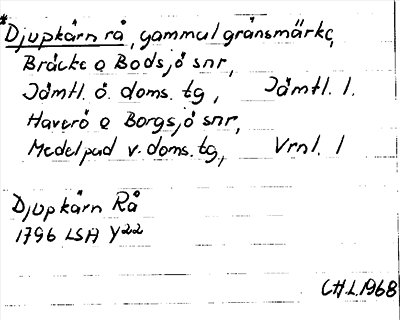 *Djupkärn rå, gammul gränsmärke,
Bräcke o Bodsjö snr,
Jämtl. ö. doms. tg, Jämtl. l.
Haverö o Borgsjö snr,
Medelpad v. doms. tg, Vrnl. l
Djupkärn Rå
1796 LSA Y22
CHL 1968